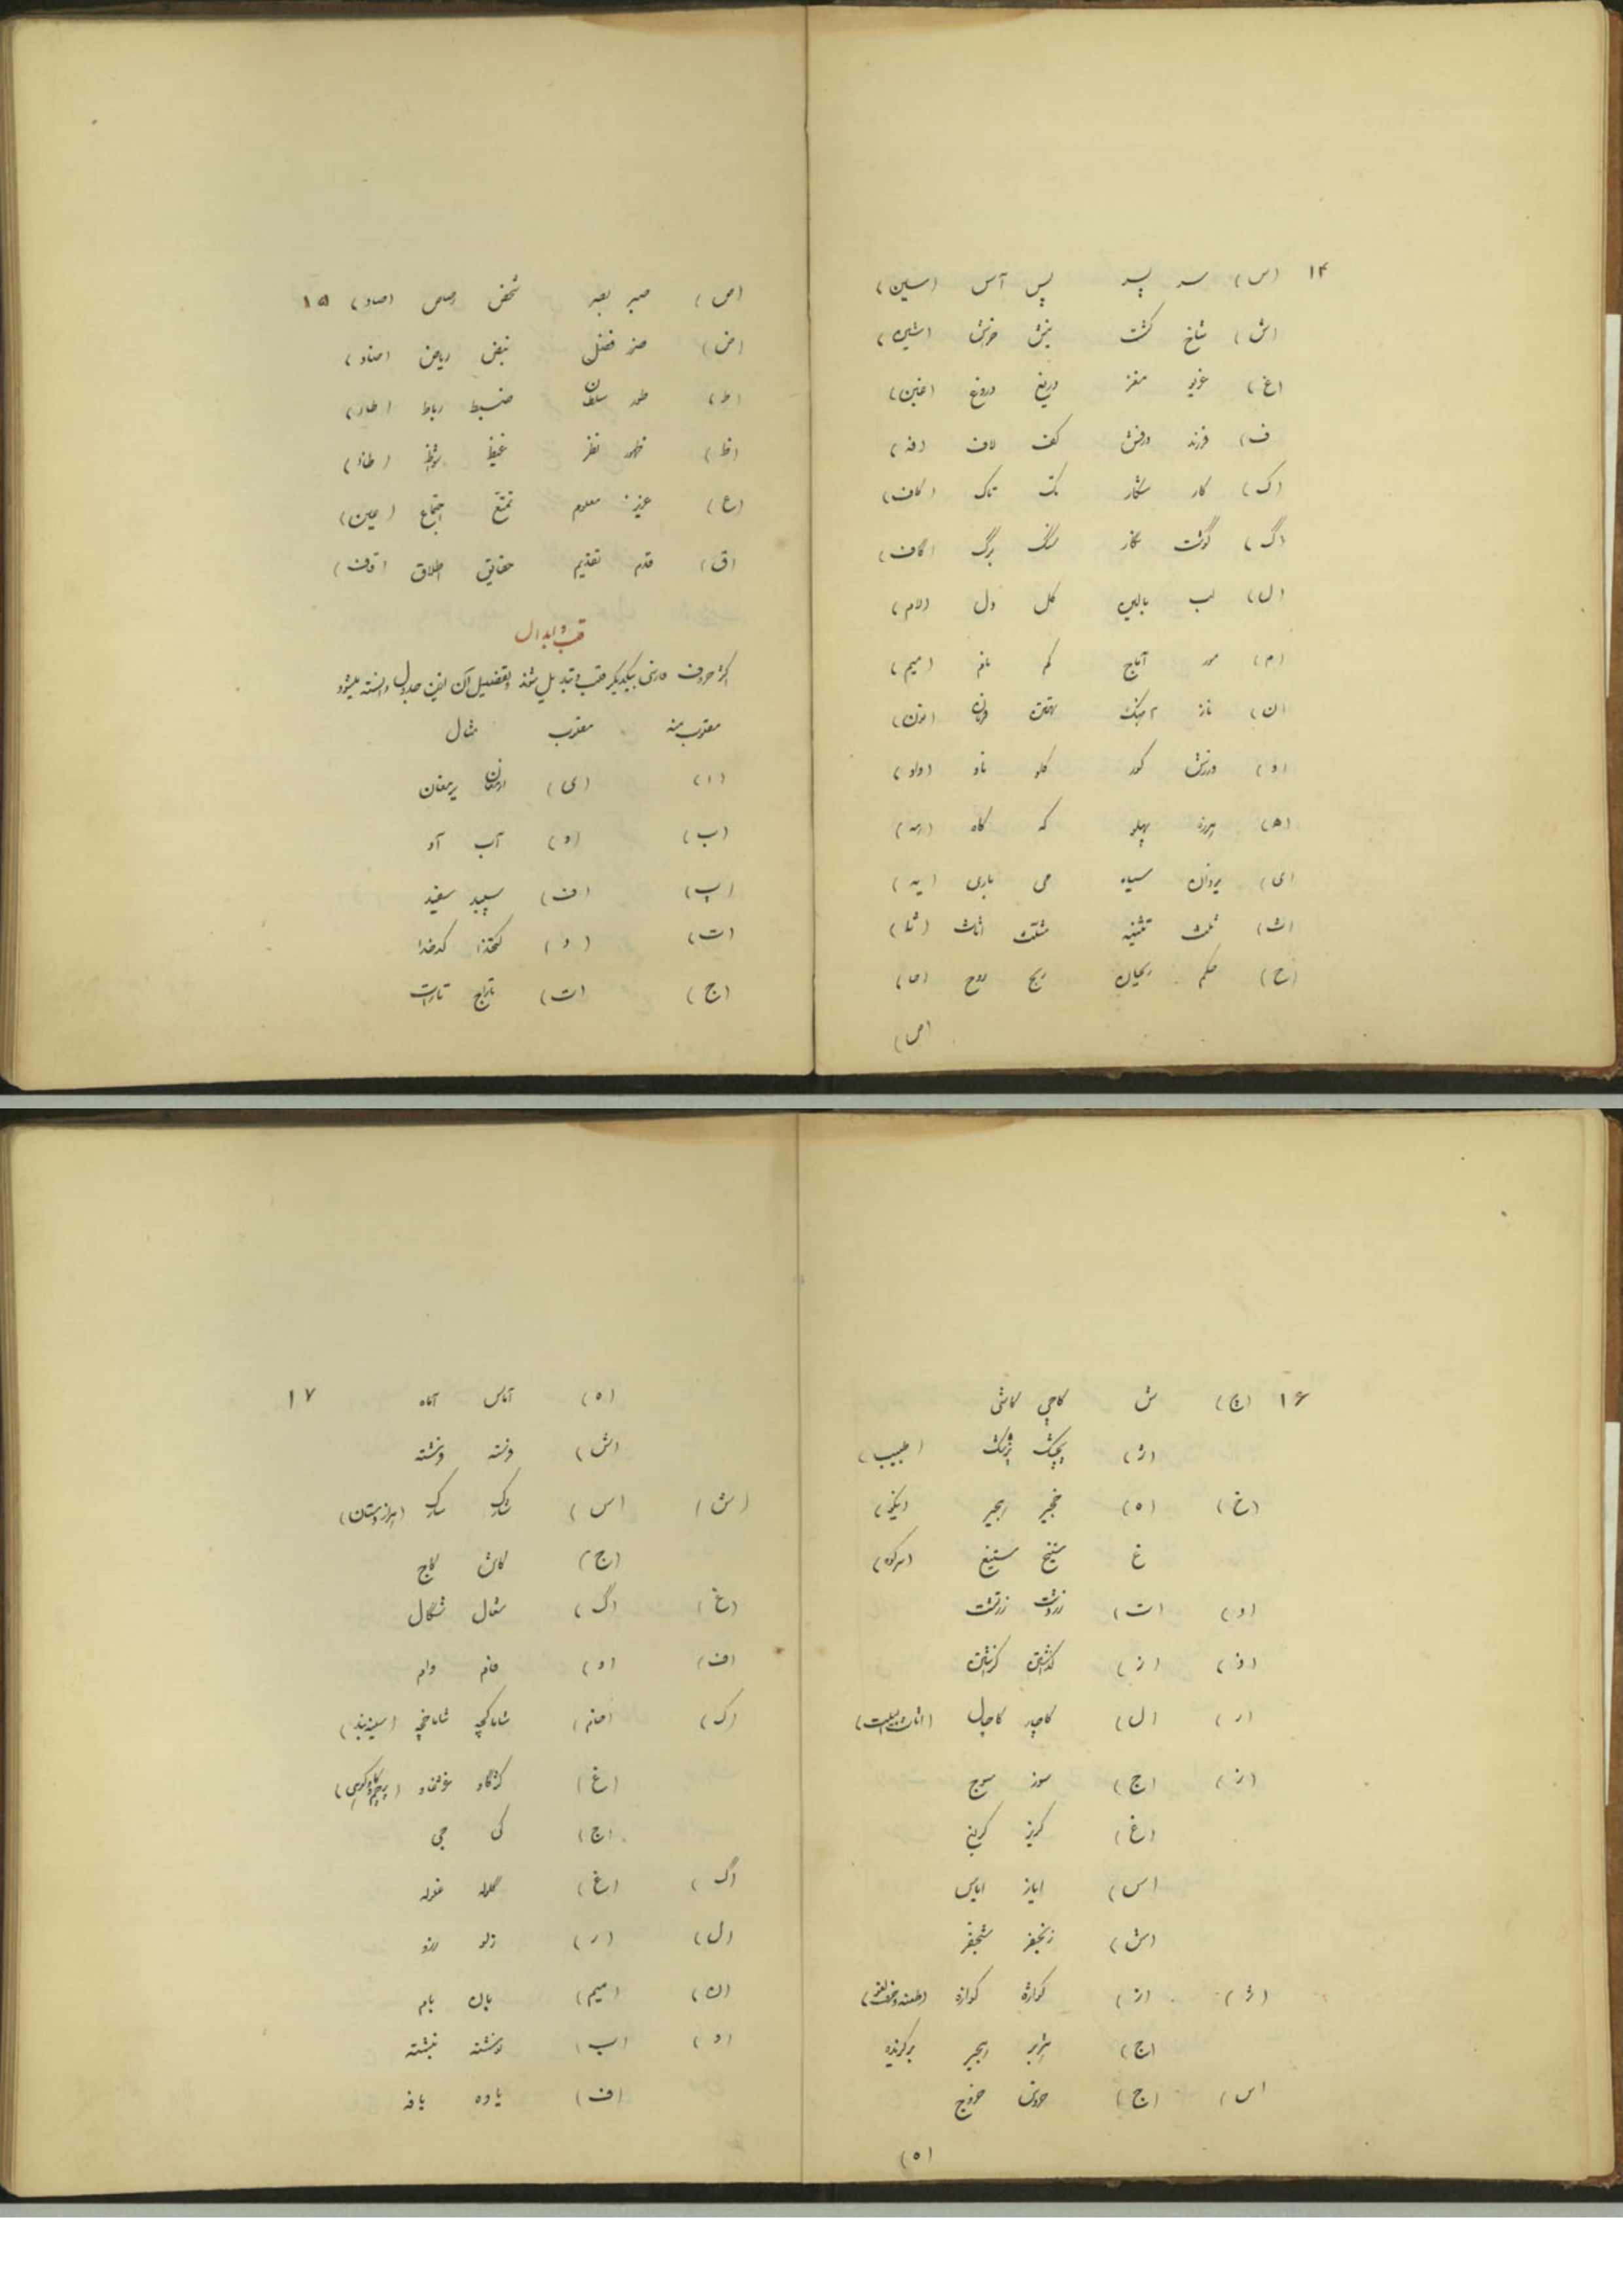 ۱۴ (س) سر پسر پس آس (سین)
(ش) شاخ کشت بینش خورش (شین)
(غ) غریو مغز دریغ دروغ (غین)
(ف) فرزند درفش کف لاف (فه)
(ک) کار شکار یک تاک (کاف)
(گ) گوشت نگار سنگ برگ (گاف)
(ل) لب بالین گل دل (لام)
(م) مور آماج کم نام (میم)
(ن) ناز آهنگ بهمن (نون)
(و) ورزش کور گلو ناو (واو)
(ه) هرزه پهلو که کاه (هه)
(ی) یزدان سیاه می یاری (یه)
(ث) ثلث تثنیه مثلث اثاث (ثا)
(ح) حکم ریحان ریح روح (حا)
(ص)
(ص) صبر بصر شخص رصاص (صاد) ۱۵
(ض) ضرر فضل نبض ریاض (ضاد)
(ط) طور سلطان ضبط رباط (طا)
(ظ) ظهور نظر غیظ شواظ (ظا)
(ع) عزیز معلوم تمتع اجتماع (عین)
(ق) قدم تقدیم حقایق اطلاق (قاف)
قلب و ابدال
اکثر حروف فارسی بیکدیگر قلب و تبدیل شوند و تفصیل آن ازین جدول دانسته میشود
مقلوب منه مقلوب مثال
(ا) (ی) ارمغان یرمغان
(ب) (و) آب آو
(پ) (ف) سپید سفید
(ت) (د) کتخدا کدخدا
(ج) (ت) تاراج تارات
۱۶ (چ) ش کاچی کاشی
(ژ) پچشک پژشک (طبیب)
(خ) (ه) خجیر هجیر (نیکو)
غ ستیخ ستیغ (سرکوه)
(د) (ت) زردشت زرتشت
(ذ) (ز) گذاشتن گزاشتن
(ر) (ل) کاچار کاچال (اثاث البیت)
(ز) (ج) سوز سوج
(غ) گریز گریغ
(س) ایاز ایاس
(ش) زنجفر شنجفر
(ژ) (ز) کواژه کوازه
(ج) هژیر هجیر برگزیده
(س) (ج) خروس خروج
(ه)
(ه) آماس آماه ۱۷
(ش) فرسته فرشته
(ش) (س) شارک سارک (هزاردستان)
(ج) کاش کاج
(غ) (گ) شغال شگال
(ف) (و) فام وام
(ک) (خا) شاماکچه شاماخچه (سینه بند)
(غ) کژگاو غژغاو
(ج) کی جی
(گ) (غ) گلوله غلوله
(ل) (ر) زلو زرو
(ن) (میم) بان بام
(و) (ب) نوشته نبشته
(ف) یاوه یافه